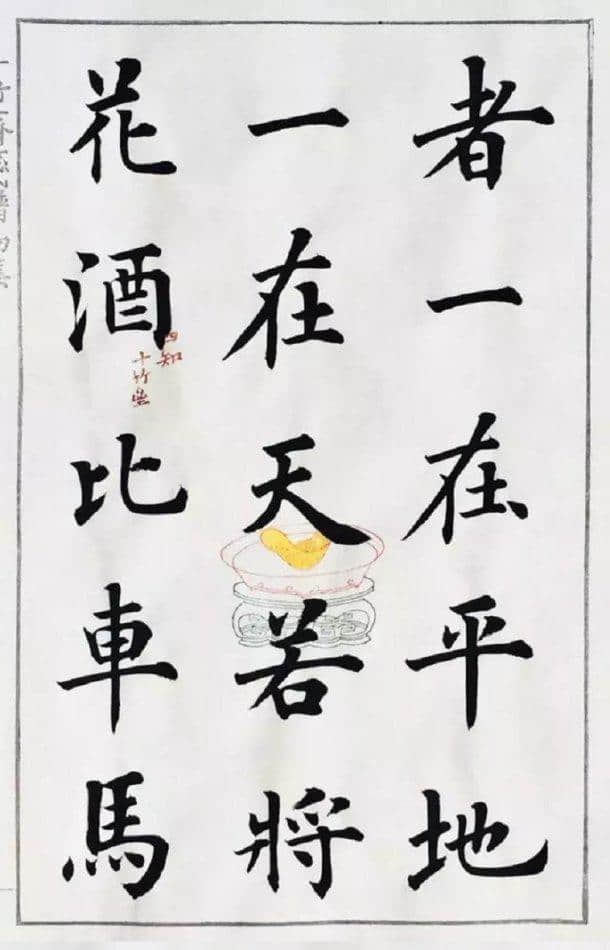 者一在平地
一在天若将
花酒比車馬
四知
十竹齋